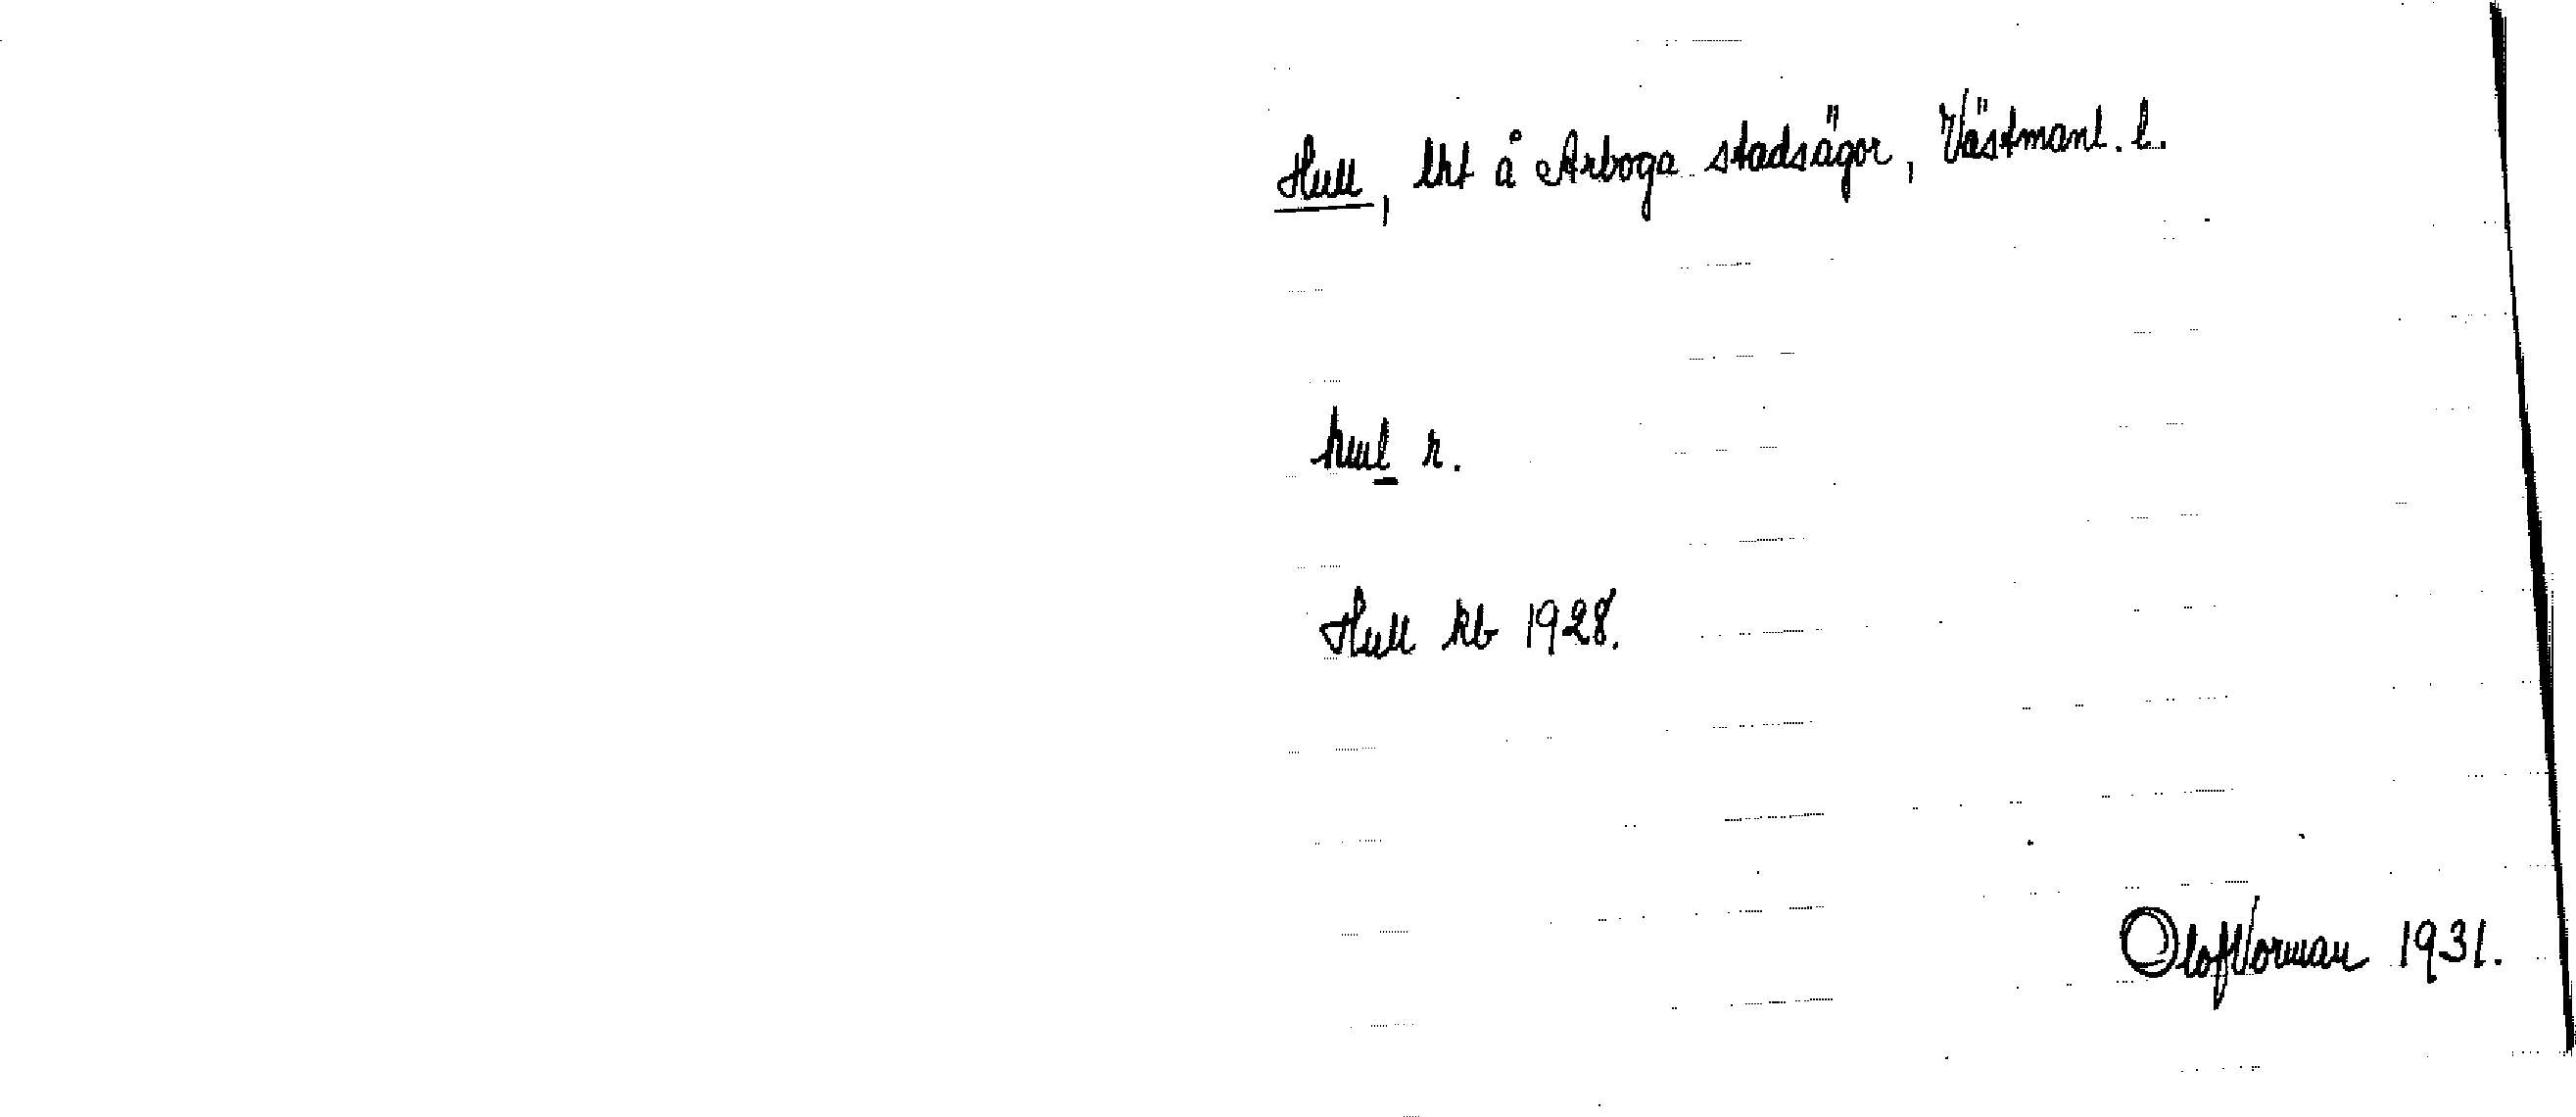 Hull, lht å Arboga stadsägor, Västmanl. l.
hul r.
Hull kb 1928.
Olof Vorman 1931.